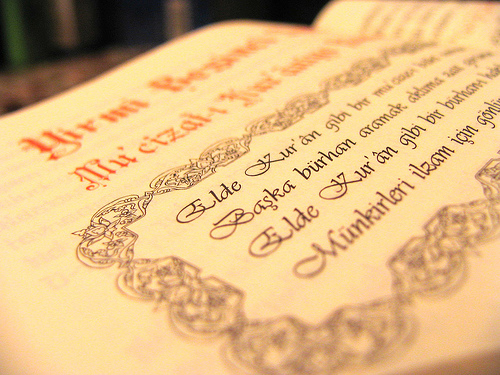 Yirmi Beşinci
Mu'cizat-ı Kur'âniye
Elde Kur'ân gibi bir mu'cize-i baki
Başka bürhan aramak aklıma zait
Elde Kur'ân gibi bir bürhan-ı
Münkirleri ilzam için